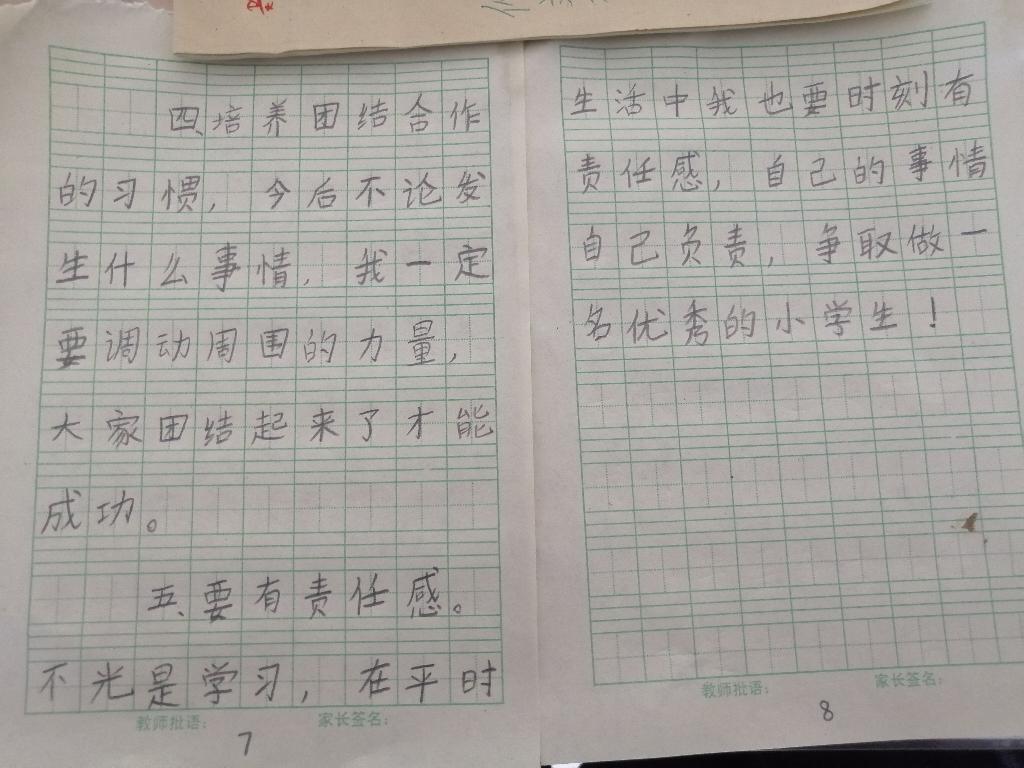 四、培养团结合作
的习惯，今后不论发
生什么事情，我一定
要调动周围的力量，
大家团结起来了才能
成功。
五、要有责任感。
不光是学习，在平时
教师批语：
家长签名：
7
生活中我也要时刻有
责任感，自己的事情
自己负责，争取做一
名优秀的小学生！
教师批语：
家长签名：
8